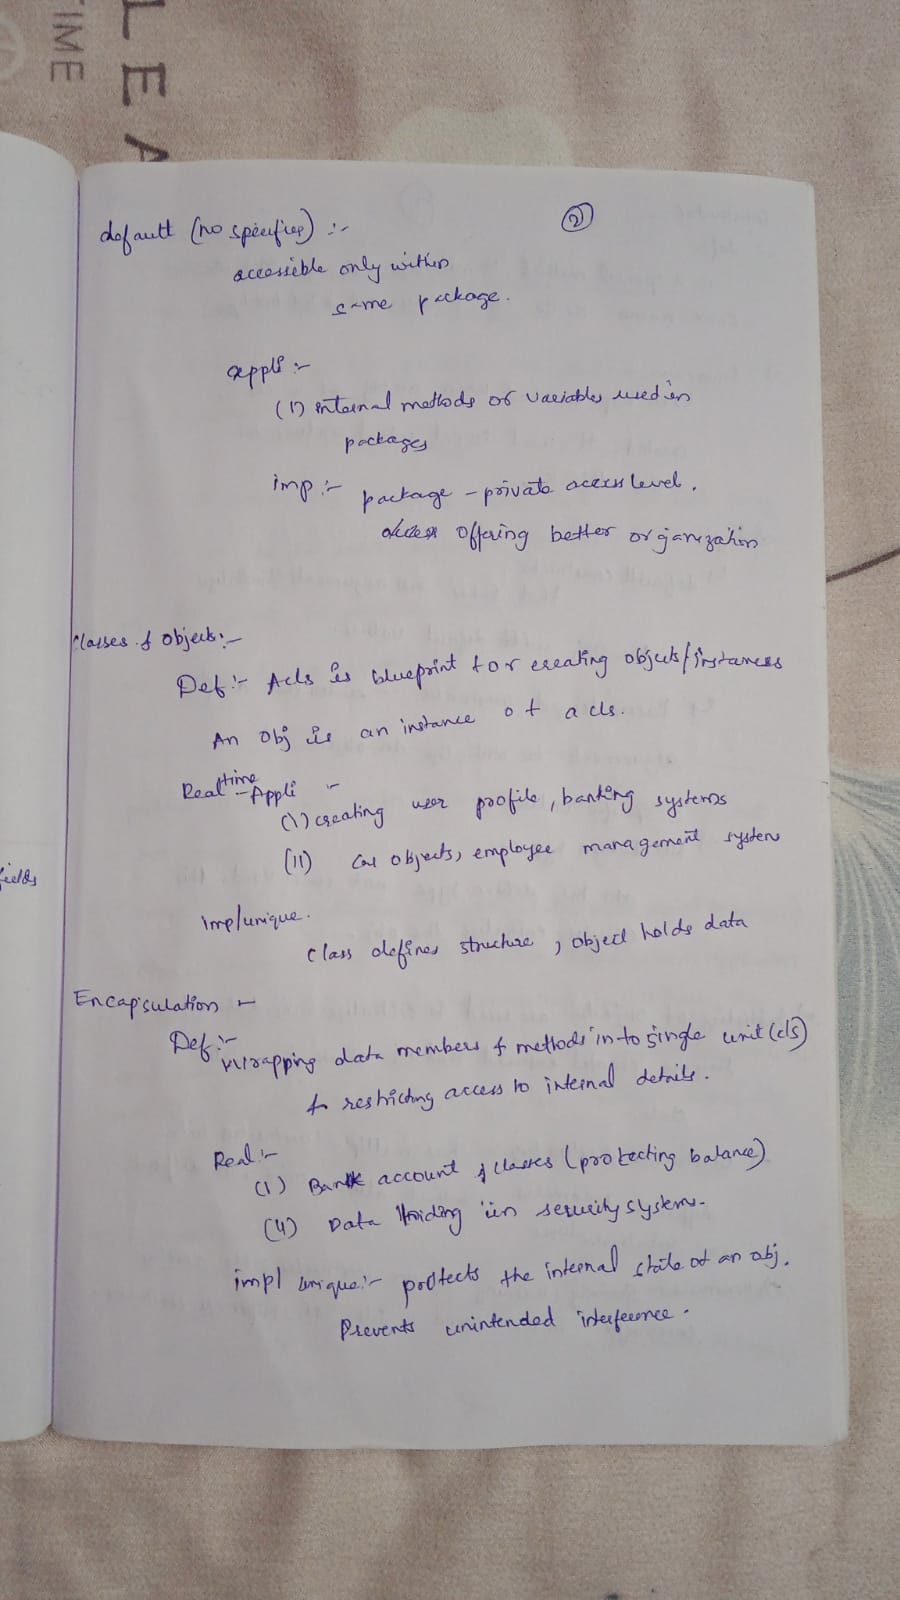 TIME
LEA
②
default (no specifies) :-
accessible only within
same package.
appli :-
(1) internal methods or variables used in
packages
imp :- package - private access level.
offering better organization
Classes & Objects :-
Def :- A cls is blueprint for creating objects/instances
An obj is an instance of a cls.
Real time Appli -
(1) creating user profile, banking systems
(11) Car objects, employee management system
fields
imp/unique.
class defines structure, object holds data
Encapsulation -
Def :-
Wrapping data members & methods in to single unit (cls)
& restricting access to internal details.
Real :-
(1) Bank account & classes (protecting balance)
(4) Data Hiding in security systems.
imp/ unique :- protects the internal state of an obj.
Prevents unintended interference.